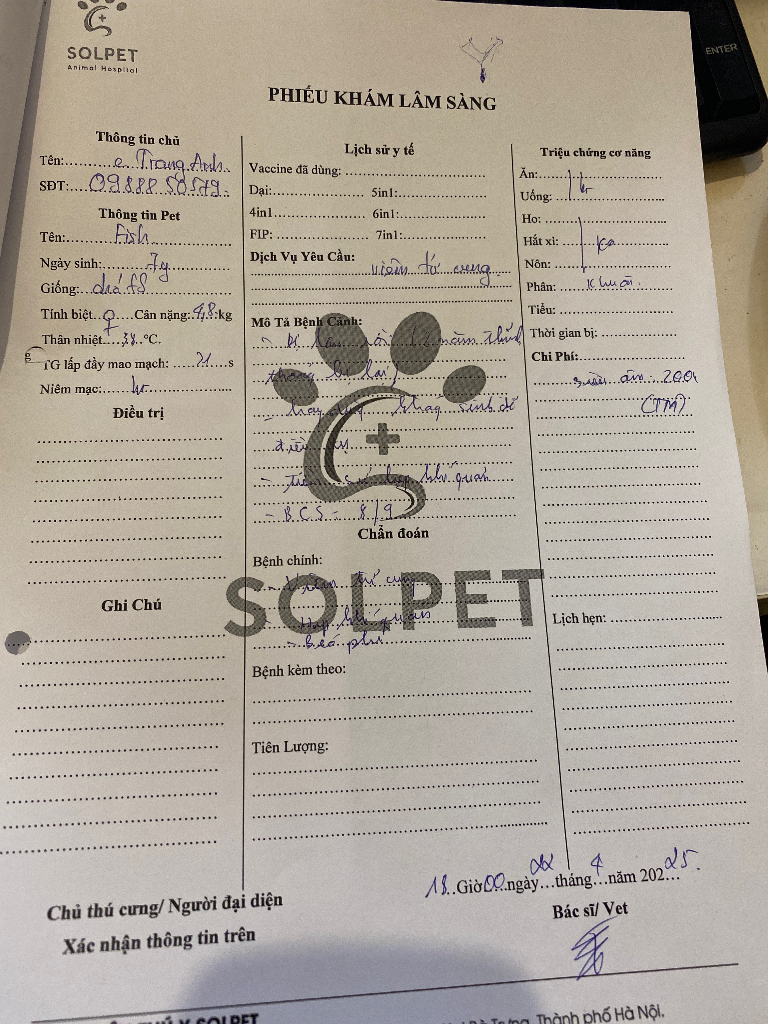 SOLPET
Animal Hospital
ENTER
PHIẾU KHÁM LÂM SÀNG
Thông tin chủ
Tên:.......... c Trang Anh.
SĐT:.... 0988850579.
Thông tin Pet
Tên:........ Fish
Ngày sinh:........ 7y
Giống:... chó FS
Tính biệt..♀....Cân nặng: 4,8 kg
Thân nhiệt...38..°C.
TG lấp đầy mao mạch: ..... 21 ....s
Niêm mạc:.... hr
Điều trị
Ghi Chú
Lịch sử y tế
Vaccine đã dùng:
Dại:.................... 5in1:
4in1.................... 6in1:
FIP:.................... 7in1:
Dịch Vụ Yêu Cầu:
viêm tử cung
Mô Tả Bệnh Cảnh:
- bị lâu rồi
tháng bị lại
- hay dùng kháng sinh để
điều trị
- tiền sử hẹp khí quản
- BCS - 8/9
Chẩn đoán
SOLPET
Bệnh chính:
- Viêm tử cung
- Hẹp khí quản
- Béo phì
Bệnh kèm theo:
Tiên Lượng:
Triệu chứng cơ năng
Ăn:
Uống:
Ho:
Hắt xì:
Nôn:
Phân:
Tiểu:
Thời gian bị:
Chi Phí:
siêu âm: 200k
(TM)
Lịch hẹn:
18..Giờ 00.ngày 22 tháng 4 năm 202 25.
Chủ thú cưng/ Người đại diện
Xác nhận thông tin trên
Bác sĩ/ Vet
SOLPET
Thành phố Hà Nội.